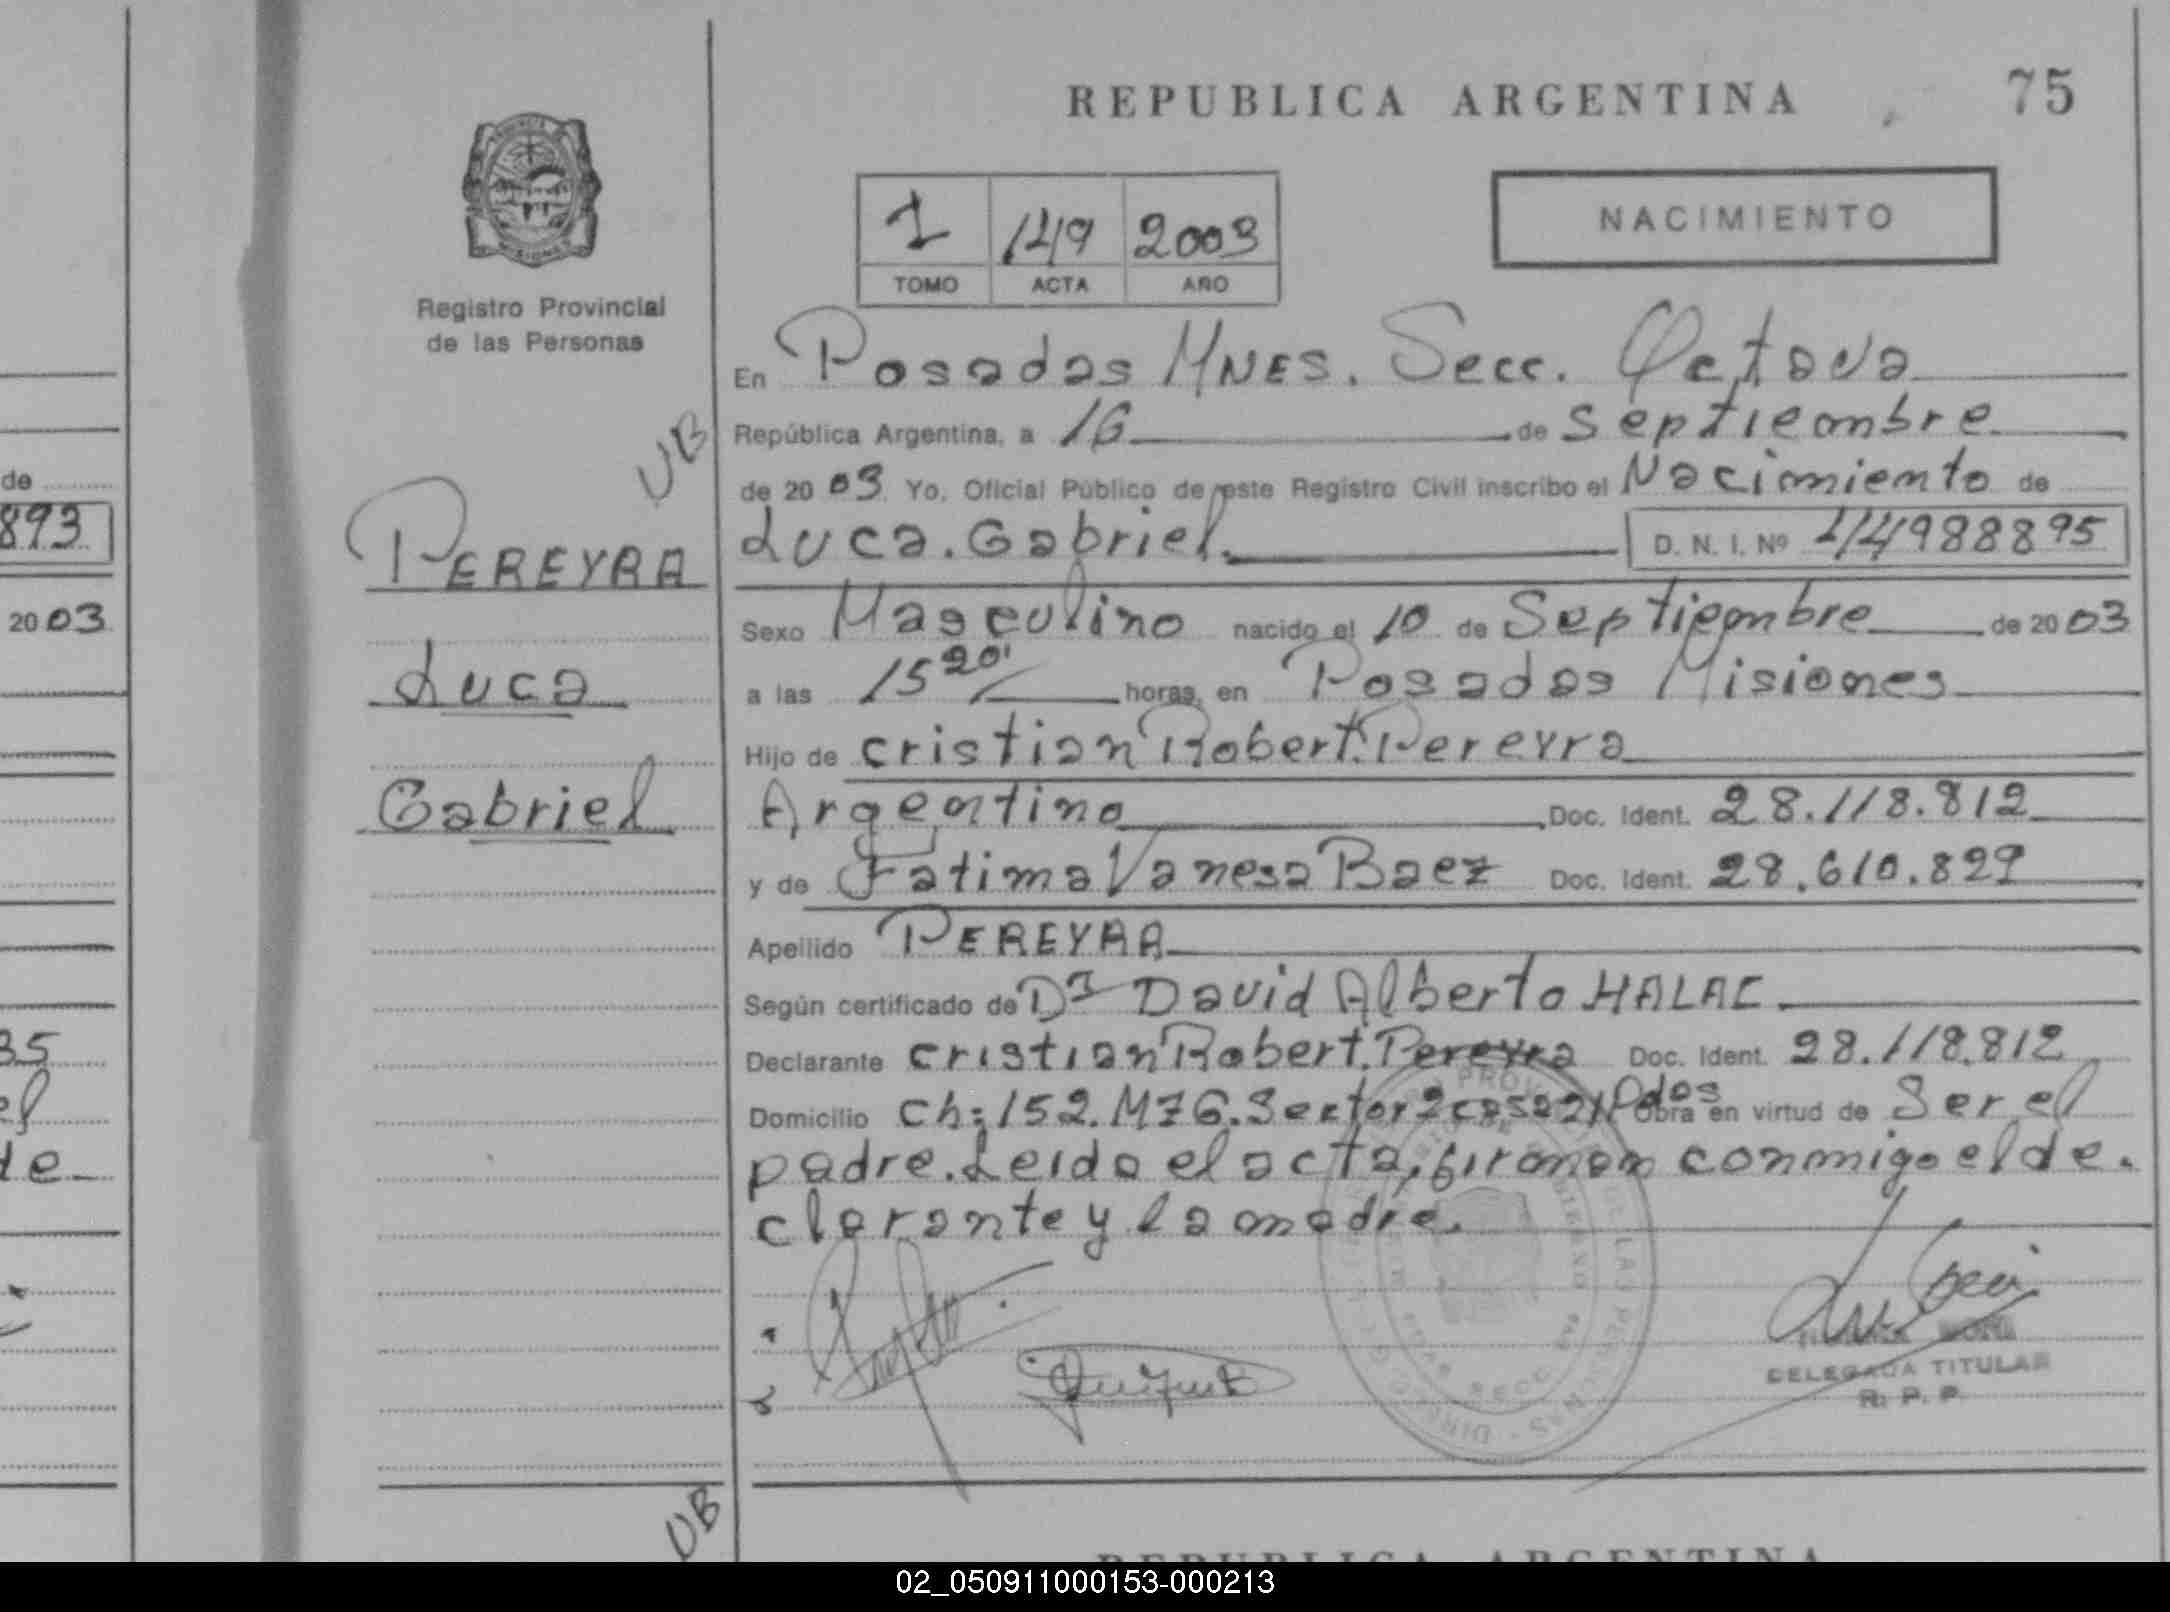 REPUBLICA ARGENTINA
75
1 149 2003
TOMO ACTA AÑO
NACIMIENTO
Registro Provincial
de las Personas
En Posadas MNES. Secc. Octava
UB
República Argentina, a 16 de Septiembre
de 2003 Yo, Oficial Público de este Registro Civil inscribo el Nacimiento de
Luca. Gabriel. D. N. I. Nº 44988895
PEREYRA
Luca
Gabriel
Sexo Masculino nacido el 10 de Septiembre de 2003
a las 15 20' horas, en Posadas Misiones
Hijo de Cristian Robert. Pereyra
Argentino Doc. Ident. 28.118.812
y de Fatima Vanesa Baez Doc. Ident. 28.610.829
Apellido PEREYRA
Según certificado de Dr David Alberto HALAC
Declarante Cristian Robert. Pereyra Doc. Ident. 28.118.812
Domicilio Ch: 152. M76. Sector 2 casa 21 Pdas Obra en virtud de Ser el
padre. Leida el acta, firman conmigo el de.
clarante y la madre.
DELEGADA TITULAR
R. P. P.
UB
REPUBLICA ARGENTINA
de
893
2003
35
el
de
02_050911000153-000213